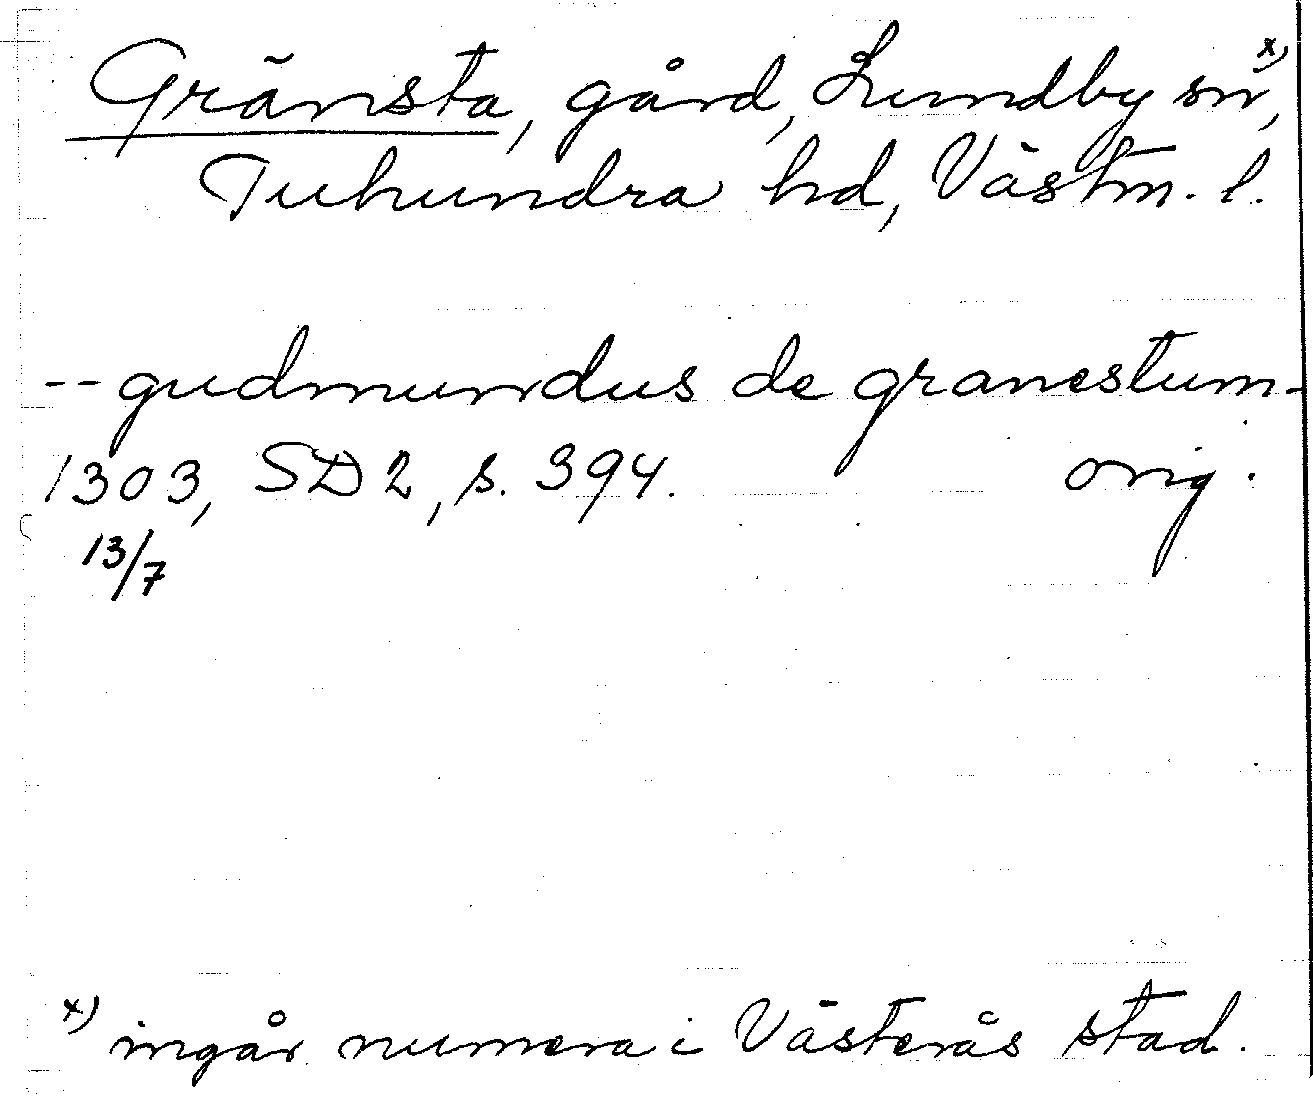 Gränsta, gård, Lundby sn x),
Tuhundra hd, Västm. l.
-- gudmundus de granestum-
1303, SD 2, s. 394. orig.
13/7
x) ingår numera i Västerås stad.